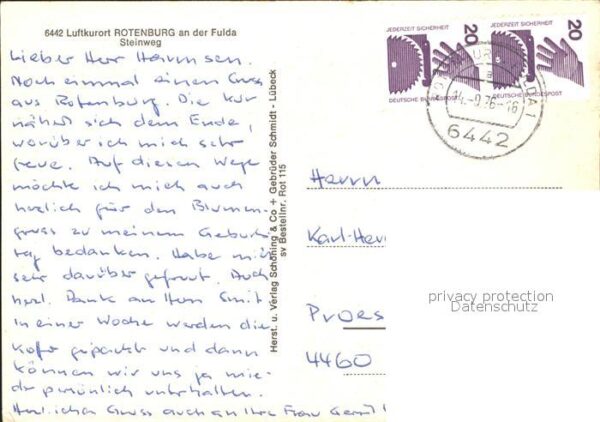 6442 Luftkurort ROTENBURG an der Fulda
Steinweg
Lieber Herr Harmsen.
Noch einmal einen Gruss
aus Rotenburg. Die Kur
nähert sich dem Ende,
worüber ich mich sehr
freue. Auf diesem Wege
möchte ich mich auch
herzlich für den Blumen-
gruss zu meinem Geburts
tag bedanken. Habe mich
sehr darüber gefreut. Auch
herzl. Dank an Herrn Smit.
In einer Woche werden die
Koffer gepackt und dann
können wir uns ja wie-
der persönlich unterhalten.
Herzlichen Gruss auch an Ihre Frau
Herst. u. Verlag Schöning & Co + Gebrüder Schmidt - Lübeck
sv Bestellnr. Rot 115
JEDERZEIT SICHERHEIT
20
DEUTSCHE BUNDESPOST
JEDERZEIT SICHERHEIT
20
DEUTSCHE BUNDESPOST
14.-9.76-16
6442
Herrn
Karl-Her
privacy protection
Datenschutz
Proes
4460